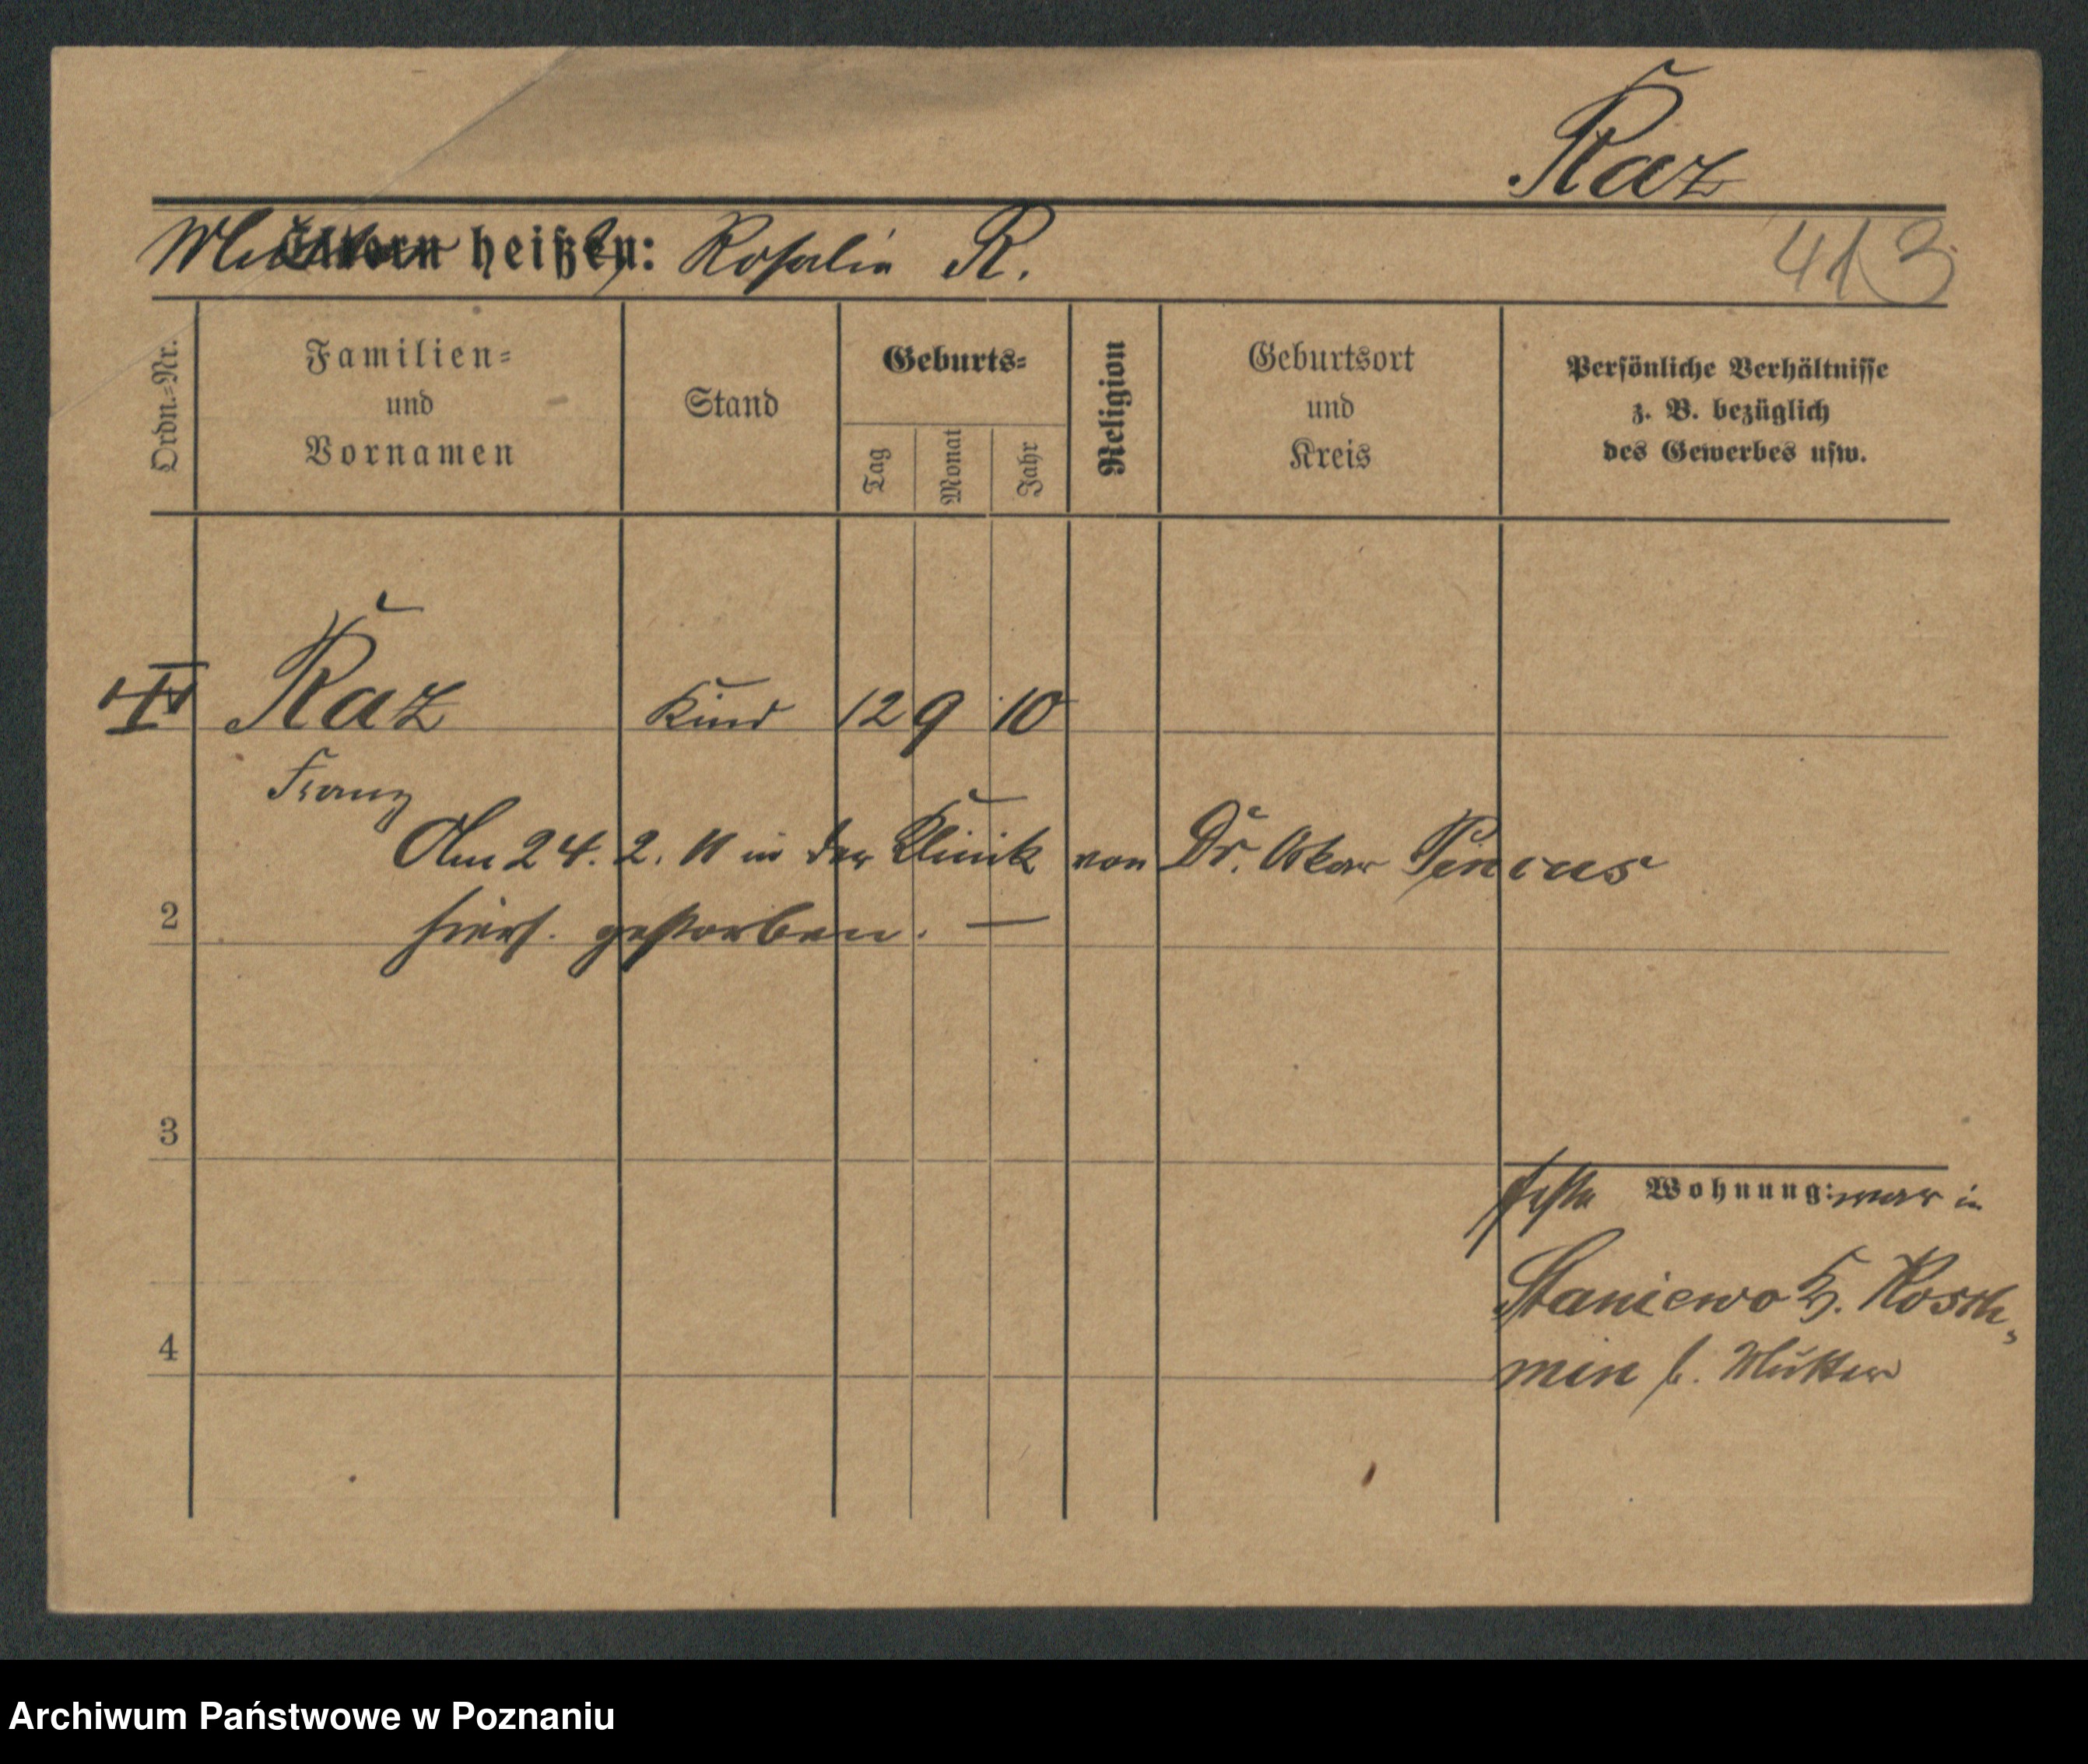 Raz
Mutter heißt: Rosalie R.
413
Ordn.-Nr.
Familien-
und
Vornamen
Stand
Geburts-
Tag
Monat
Jahr
Religion
Geburtsort
und
Kreis
Persönliche Verhältnisse
z. B. bezüglich
des Gewerbes usw.
Raz Kind 12 9 10
Franz
Am 24. 2. 11 in der Klinik von Dr. Oskar Pincus
2
hiers. gestorben. —
3
Wohnung: war in
Staniewo K. Kosch-
4
min b. Mutter
Archiwum Państwowe w Poznaniu